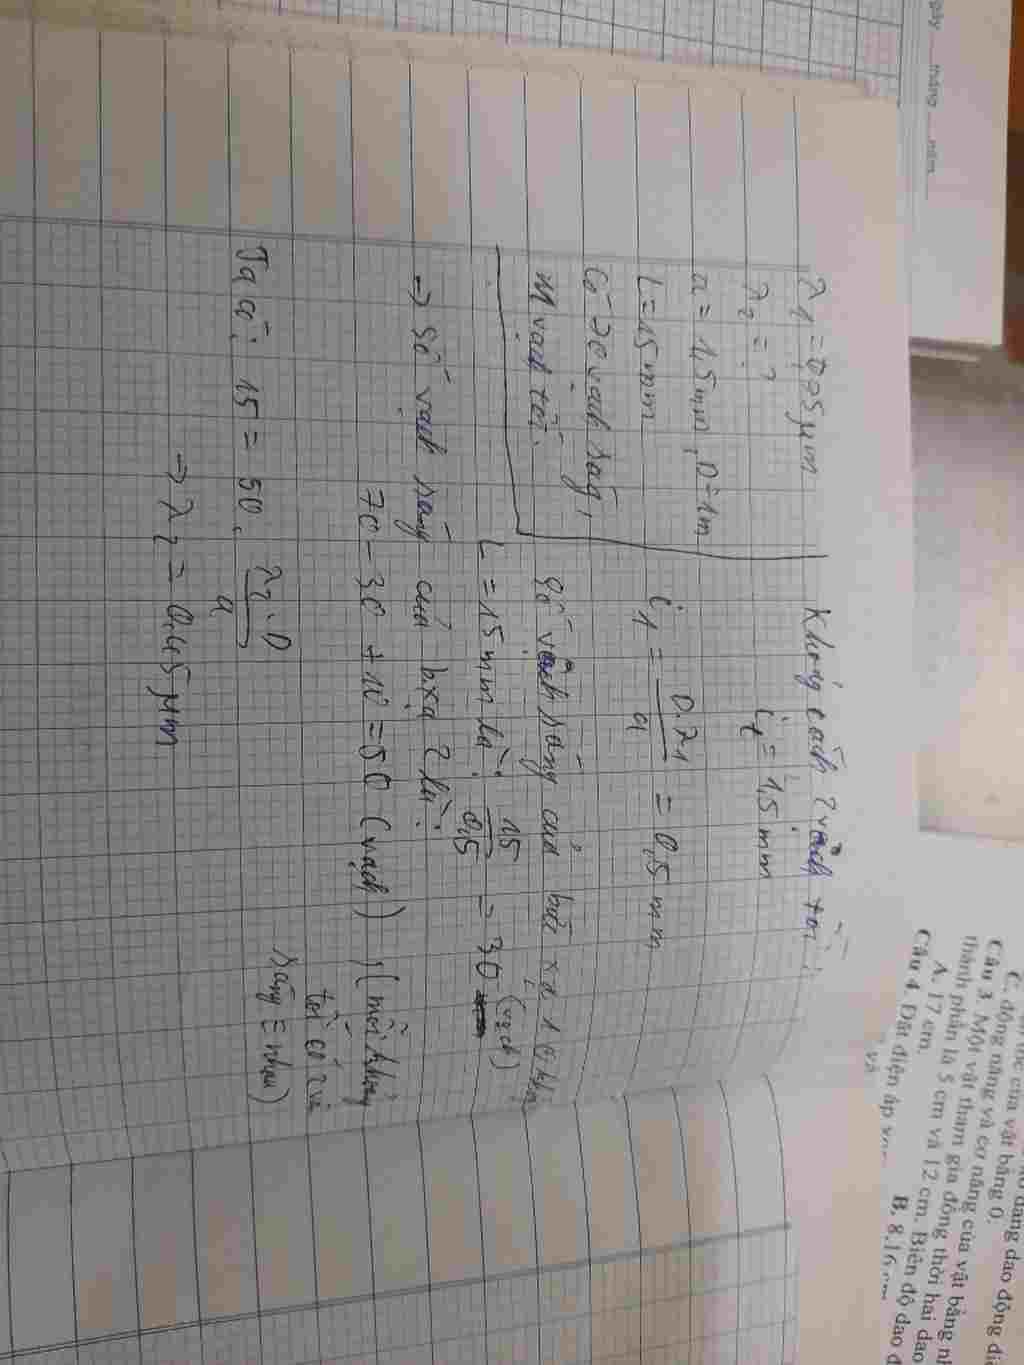 λ1 = 0,75μm
λ2 = ?
a = 1,5mm, D = 1m
L = 15mm
Có 70 vạch sáng,
11 vạch tối.
Khoảng cách 2 vạch tối:
it = 1,5mm
i1 = D.λ1 / a = 0,5 mm
Số vạch sáng của bức xạ 1 ở
L = 15mm là: 15 / 0,5 = 30 (vạch)
→ Số vạch sáng của bxạ 2 là:
70 - 30 + 10 = 50 (vạch) , (mỗi khoảng
tối có 2 vạch
sáng ≡ nhau)
Ta có: 15 = 50. λ2.D / a
→ λ2 = 0,45μm
gày tháng năm
C. động năng và cơ năng của vật bằng
Câu 3. Một vật tham gia đồng thời hai dao
thành phần là 5 cm và 12 cm. Biên độ dao đ
A. 17 cm.
B. 8.16 cm
Câu 4. Đặt điện áp